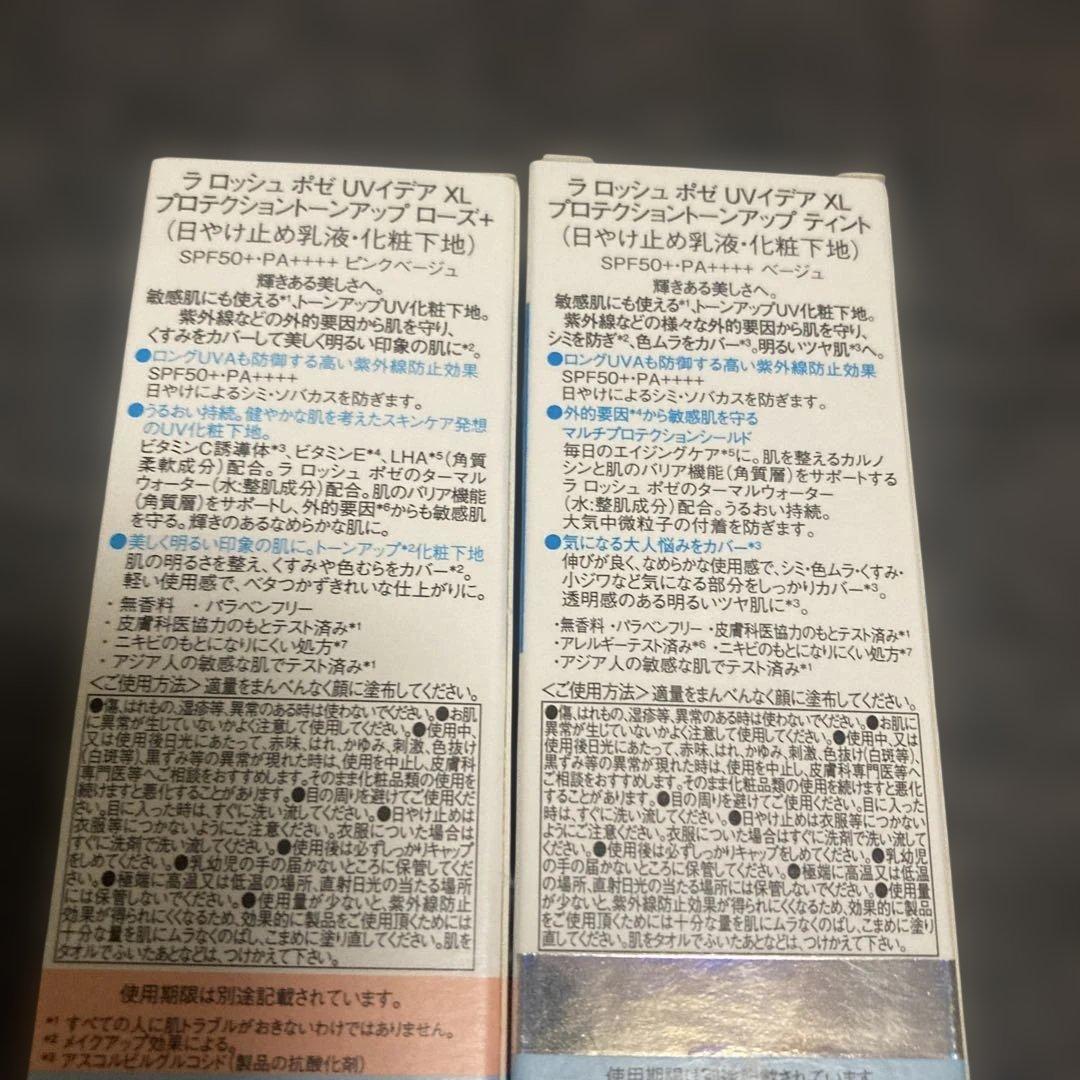 ラ ロッシュ ポゼ UVイデア XL
プロテクショントーンアップ ローズ+
(日やけ止め乳液・化粧下地)
SPF50+・PA++++ ピンクベージュ
輝きある美しさへ。
敏感肌にも使える*1、トーンアップUV化粧下地。
紫外線などの外的要因から肌を守り、
くすみをカバーして美しく明るい印象の肌に*2。
●ロングUVAも防御する高い紫外線防止効果
SPF50+・PA++++
日やけによるシミ・ソバカスを防ぎます。
●うるおい持続。健やかな肌を考えたスキンケア発想
のUV化粧下地。
ビタミンC誘導体*3、ビタミンE*4、LHA*5(角質
柔軟成分)配合。ラ ロッシュ ポゼのターマル
ウォーター(水:整肌成分)配合。肌のバリア機能
(角質層)をサポートし、外的要因*6からも敏感肌
を守る。輝きのあるなめらかな肌に。
●美しく明るい印象の肌に。トーンアップ*2化粧下地
肌の明るさを整え、くすみや色むらをカバー*2。
軽い使用感で、ベタつかずきれいな仕上がりに。
・無香料 ・パラベンフリー
・皮膚科医協力のもとテスト済み*1
・ニキビのもとになりにくい処方*7
・アジア人の敏感な肌でテスト済み*1
<ご使用方法>適量をまんべんなく顔に塗布してください。
●傷、はれもの、湿疹等、異常のある時は使わないでください。●お肌
に異常が生じていないかよく注意して使用してください。●使用中、
又は使用後日光にあたって、赤味、はれ、かゆみ、刺激、色抜け
(白斑等)、黒ずみ等の異常が現れた時は、使用を中止し、皮膚科
専門医等へご相談をおすすめします。そのまま化粧品類の使用を
続けますと悪化することがあります。●目の周りを避けてご使用くだ
さい。目に入った時は、すぐに洗い流してください。●日やけ止めは
衣服等につかないようにご注意ください。衣服についた場合は
すぐに洗剤で洗い流してください。●使用後は必ずしっかりキャップ
をしめてください。●乳幼児の手の届かないところに保管してくだ
さい。●極端に高温又は低温の場所、直射日光の当たる場所
には保管しないでください。●使用量が少ないと、紫外線防止
効果が得られにくくなるため、効果的に製品をご使用頂くためには
十分な量を肌にムラなくのばし、こまめに塗り直してください。肌を
タオルでふいたあとなどは、つけかえて下さい。
使用期限は別途記載されています。
*1 すべての人に肌トラブルがおきないわけではありません。
*2 メイクアップ効果による。
*3 アスコルビルグルコシド(製品の抗酸化剤)
ラ ロッシュ ポゼ UVイデア XL
プロテクショントーンアップ ティント
(日やけ止め乳液・化粧下地)
SPF50+・PA++++ ベージュ
輝きある美しさへ。
敏感肌にも使える*1、トーンアップUV化粧下地。
紫外線などの様々な外的要因から肌を守り、
シミを防ぎ*2、色ムラをカバー*3。明るいツヤ肌*3へ。
●ロングUVAも防御する高い紫外線防止効果
SPF50+・PA++++
日やけによるシミ・ソバカスを防ぎます。
●外的要因*4から敏感肌を守る
マルチプロテクションシールド
毎日のエイジングケア*5に。肌を整えるカルノ
シンと肌のバリア機能(角質層)をサポートする
ラ ロッシュ ポゼのターマルウォーター
(水:整肌成分)配合。うるおい持続。
大気中微粒子の付着を防ぎます。
●気になる大人悩みをカバー*3
伸びが良く、なめらかな使用感で、シミ・色ムラ・くすみ・
小ジワなど気になる部分をしっかりカバー*3。
透明感のある明るいツヤ肌に*3。
・無香料・パラベンフリー ・皮膚科医協力のもとテスト済み*1
・アレルギーテスト済み*6 ・ニキビのもとになりにくい処方*7
・アジア人の敏感な肌でテスト済み*1
<ご使用方法>適量をまんべんなく顔に塗布してください。
●傷、はれもの、湿疹等、異常のある時は使わないでください。●お肌に
異常が生じていないかよく注意して使用してください。●使用中、又は
使用後日光にあたって、赤味、はれ、かゆみ、刺激、色抜け(白斑等)、
黒ずみ等の異常が現れた時は、使用を中止し、皮膚科専門医等へ
ご相談をおすすめします。そのまま化粧品類の使用を続けますと悪化
することがあります。●目の周りを避けてご使用ください。目に入った
時は、すぐに洗い流してください。●日やけ止めは衣服等につかない
ようにご注意ください。衣服についた場合はすぐに洗剤で洗い流して
ください。●使用後は必ずしっかりキャップをしめてください。●乳幼児
の手の届かないところに保管してください。●極端に高温又は低温
の場所、直射日光の当たる場所には保管しないでください。●使用量
が少ないと、紫外線防止効果が得られにくくなるため、効果的に製品
をご使用頂くためには十分な量を肌にムラなくのばし、こまめに塗り
直してください。肌をタオルでふいたあとなどは、つけかえて下さい。
使用期限は別途記載されています。